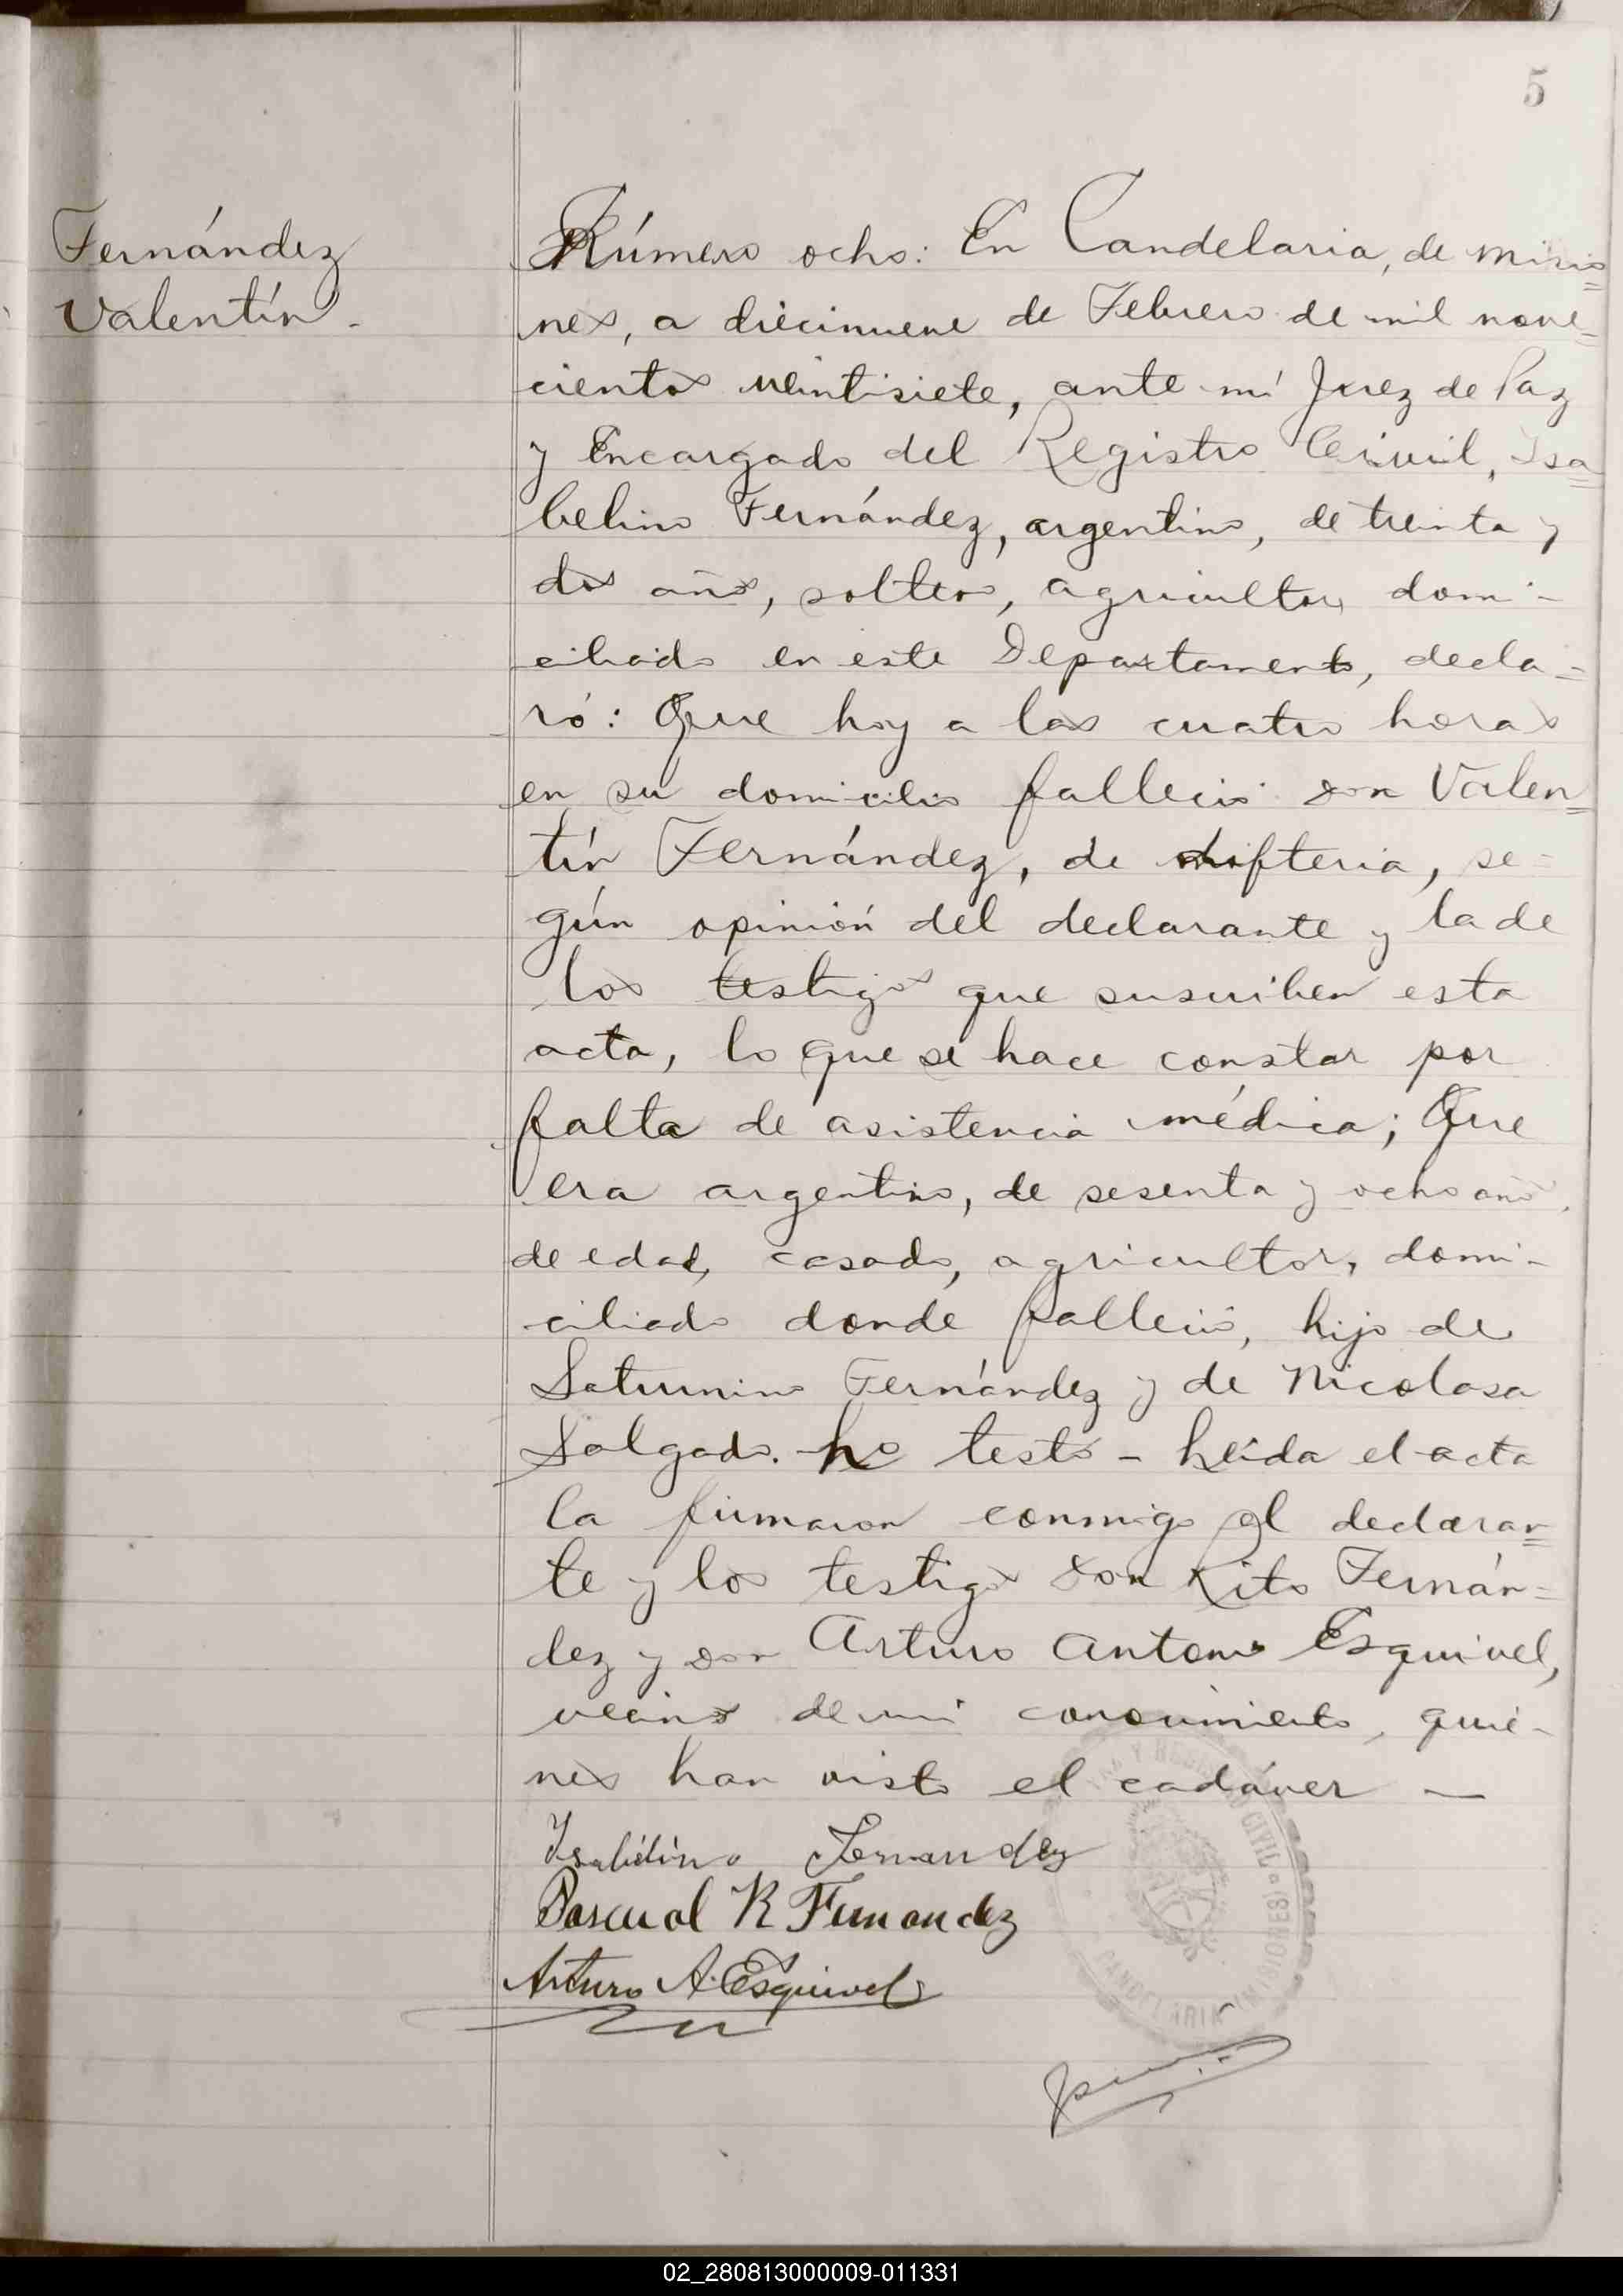 5
Fernández
Valentín.
Número ocho: En Candelaria, de Misio=
nes, a diecinueve de Febrero de mil nove=
cientos veintisiete, ante mí Juez de Paz
y Encargado del Registro Civil, Isa=
belino Fernández, argentino, de treinta y
dos años, soltero, agricultor, domi-
ciliado en este Departamento, decla-
ró: Que hoy a las cuatro horas
en su domicilio falleció don Valen=
tín Fernández, de difteria, se-
gún opinión del declarante y la de
los testigos que suscriben esta
acta, lo que se hace constar por
falta de asistencia médica; Que
era argentino, de sesenta y ocho años
de edad, casado, agricultor, domi-
ciliado donde falleció, hijo de
Saturnino Fernández y de Nicolasa
Salgado. No testó - Leída el acta
la firmaron conmigo el declaran=
te y los testigos don Rito Fernán=
dez y don Arturo Antonio Esquivel,
vecinos de mi conocimiento, quie-
nes han visto el cadáver —
Isabelino Fernandez
Pascual R Fernandez
Arturo A. Esquivel
PAZ Y REGISTRO CIVIL
CANDELARIA (MISIONES)
02_280813000009-011331